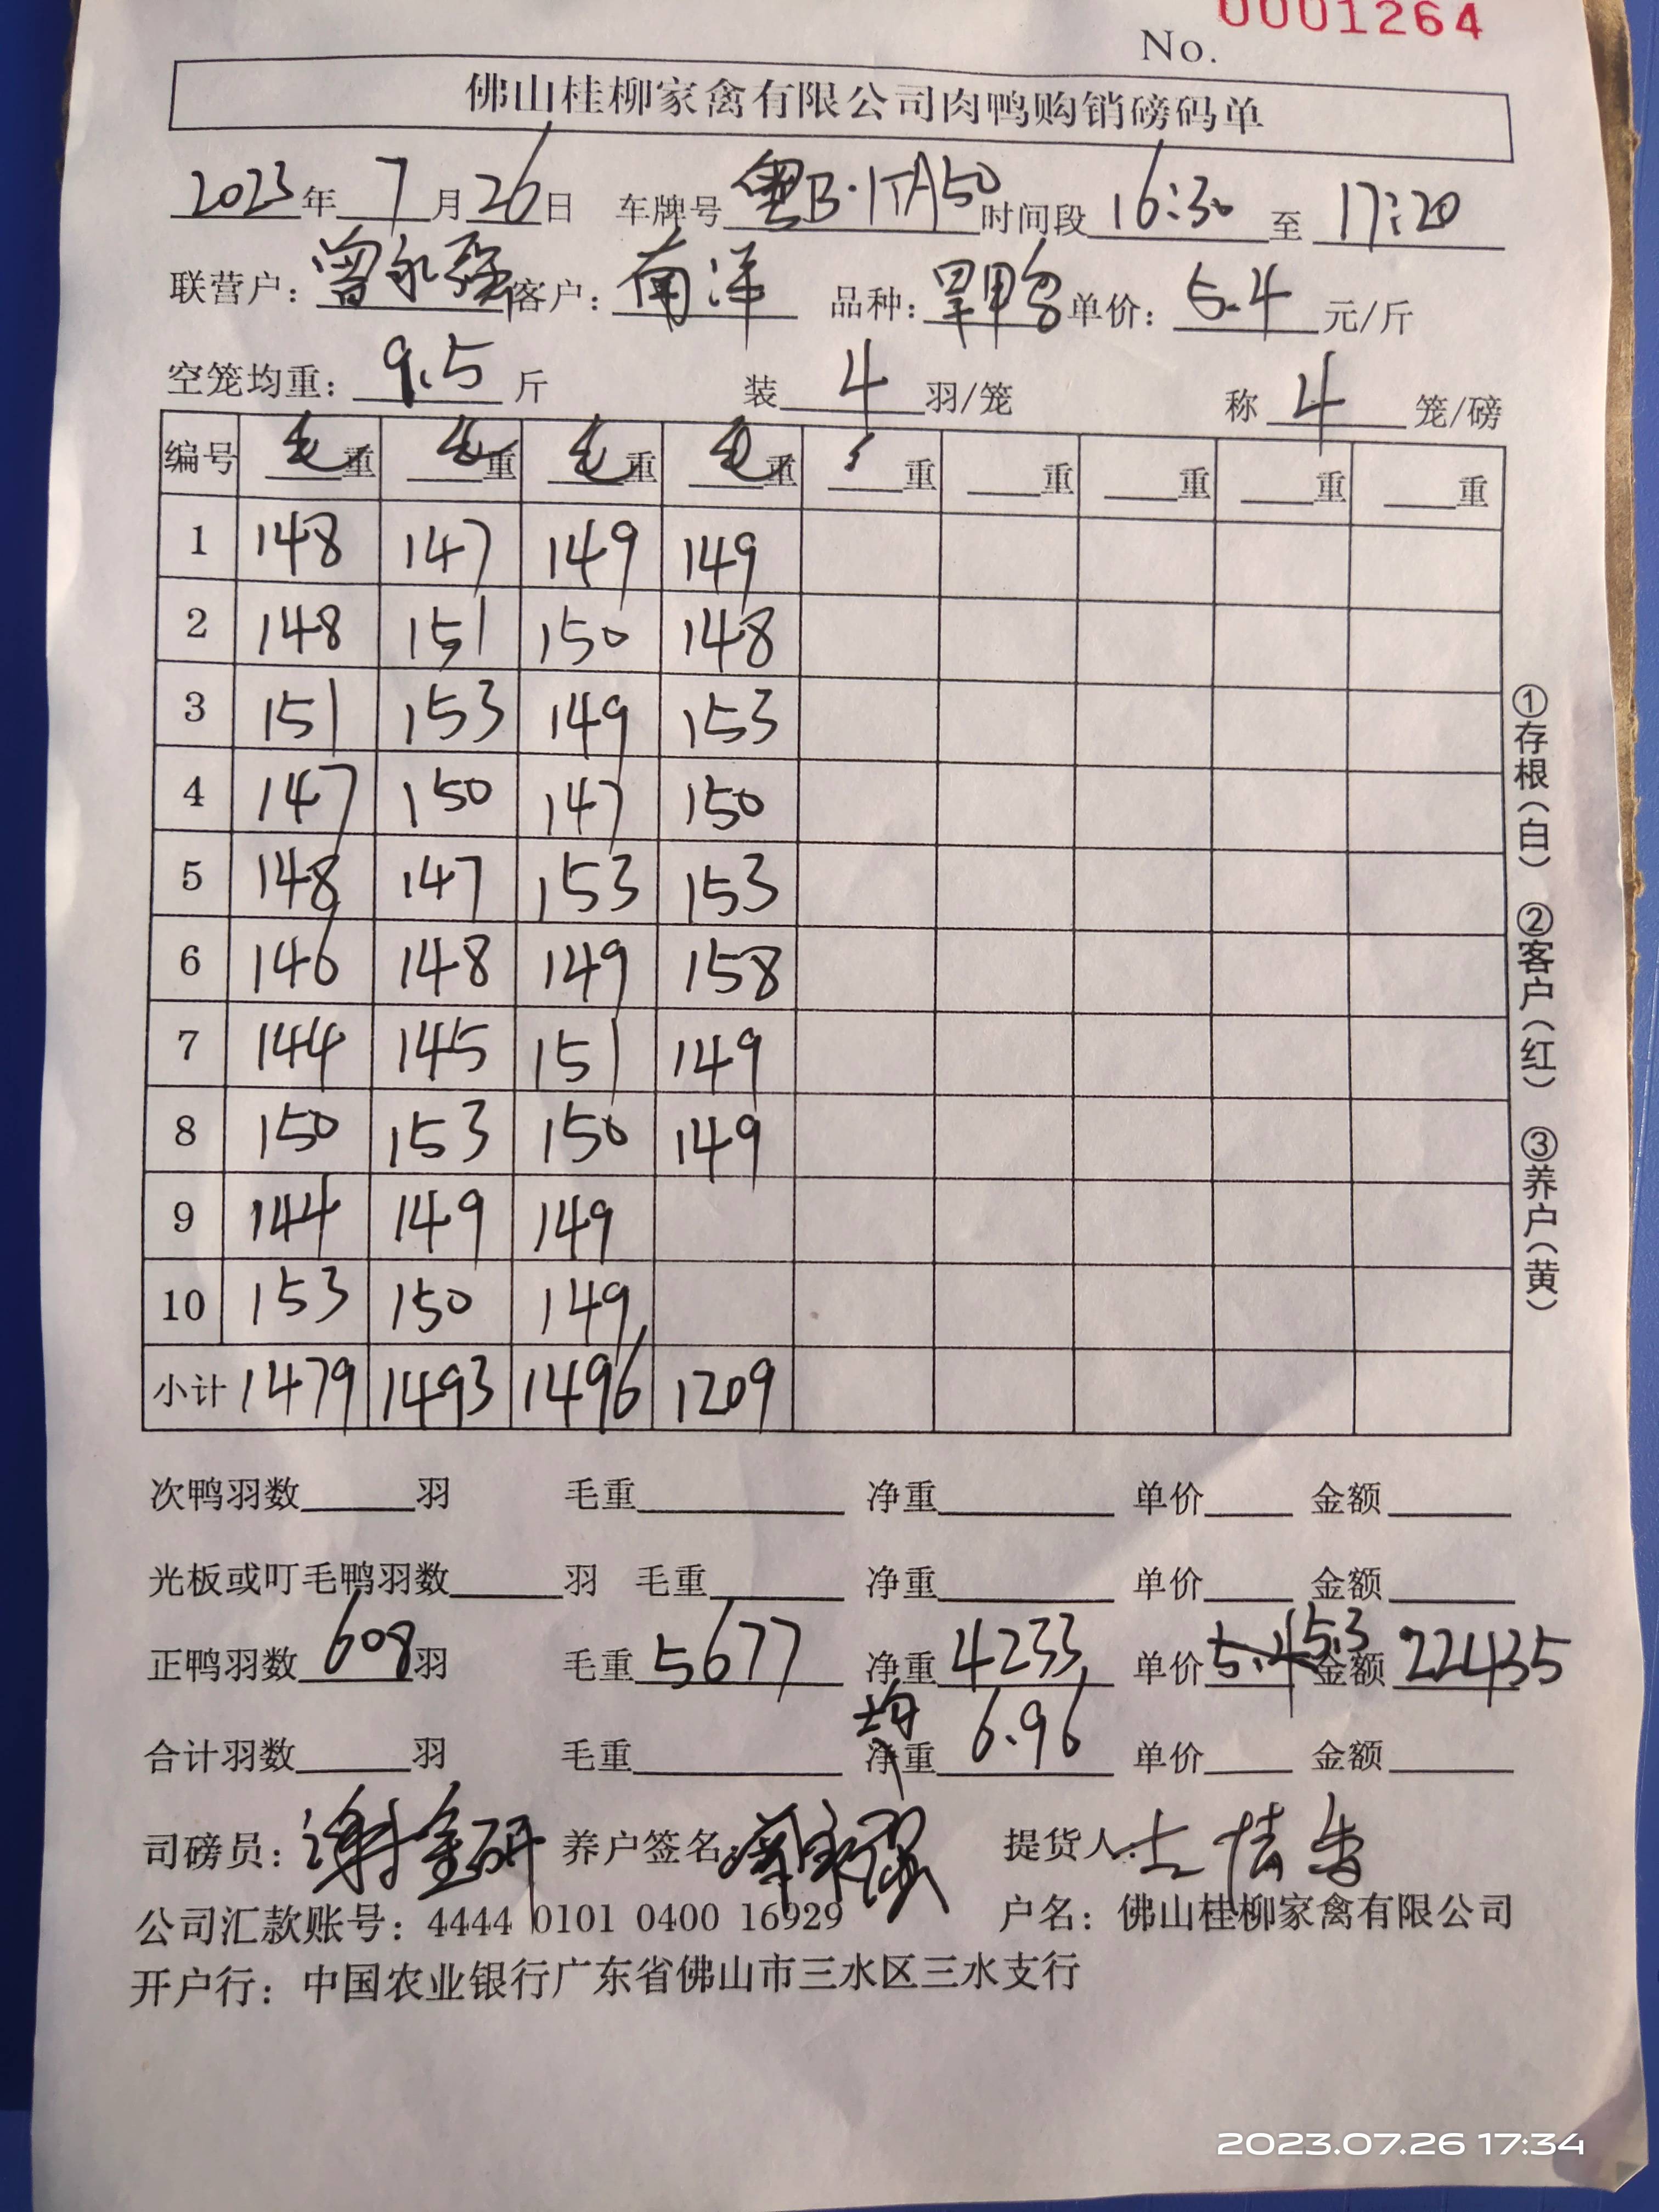 No. 0001264
佛山桂柳家禽有限公司肉鸭购销磅码单
2023年 7月26日 车牌号 粤B·1TA50 时间段 16:30 至 17:20
联营户：曾永强 客户：南洋 品种： 单价：5.4 元/斤
空笼均重：9.5 斤 装 4 羽/笼 称 4 笼/磅
编号 毛重 毛重 毛重 毛重 重 重 重 重 重
1 148 147 149 149
2 148 151 150 148
3 151 153 149 153
4 147 150 147 150
5 148 147 153 153
6 146 148 149 158
7 144 145 151 149
8 150 153 150 149
9 144 149 149
10 153 150 149
小计 1479 1493 1496 1209
次鸭羽数 羽 毛重 净重 单价 金额
光板或叮毛鸭羽数 羽 毛重 净重 单价 金额
正鸭羽数 608 羽 毛重 5677 净重 4233 单价 5.4 5.3 金额 22435
合计羽数 羽 毛重 均净重 6.96 单价 金额
司磅员：谢金研 养户签名：曾永强 提货人：
公司汇款账号：4444 0101 0400 16929 户名：佛山桂柳家禽有限公司
开户行：中国农业银行广东省佛山市三水区三水支行
①存根（白） ②客户（红） ③养户（黄）
2023.07.26 17:34